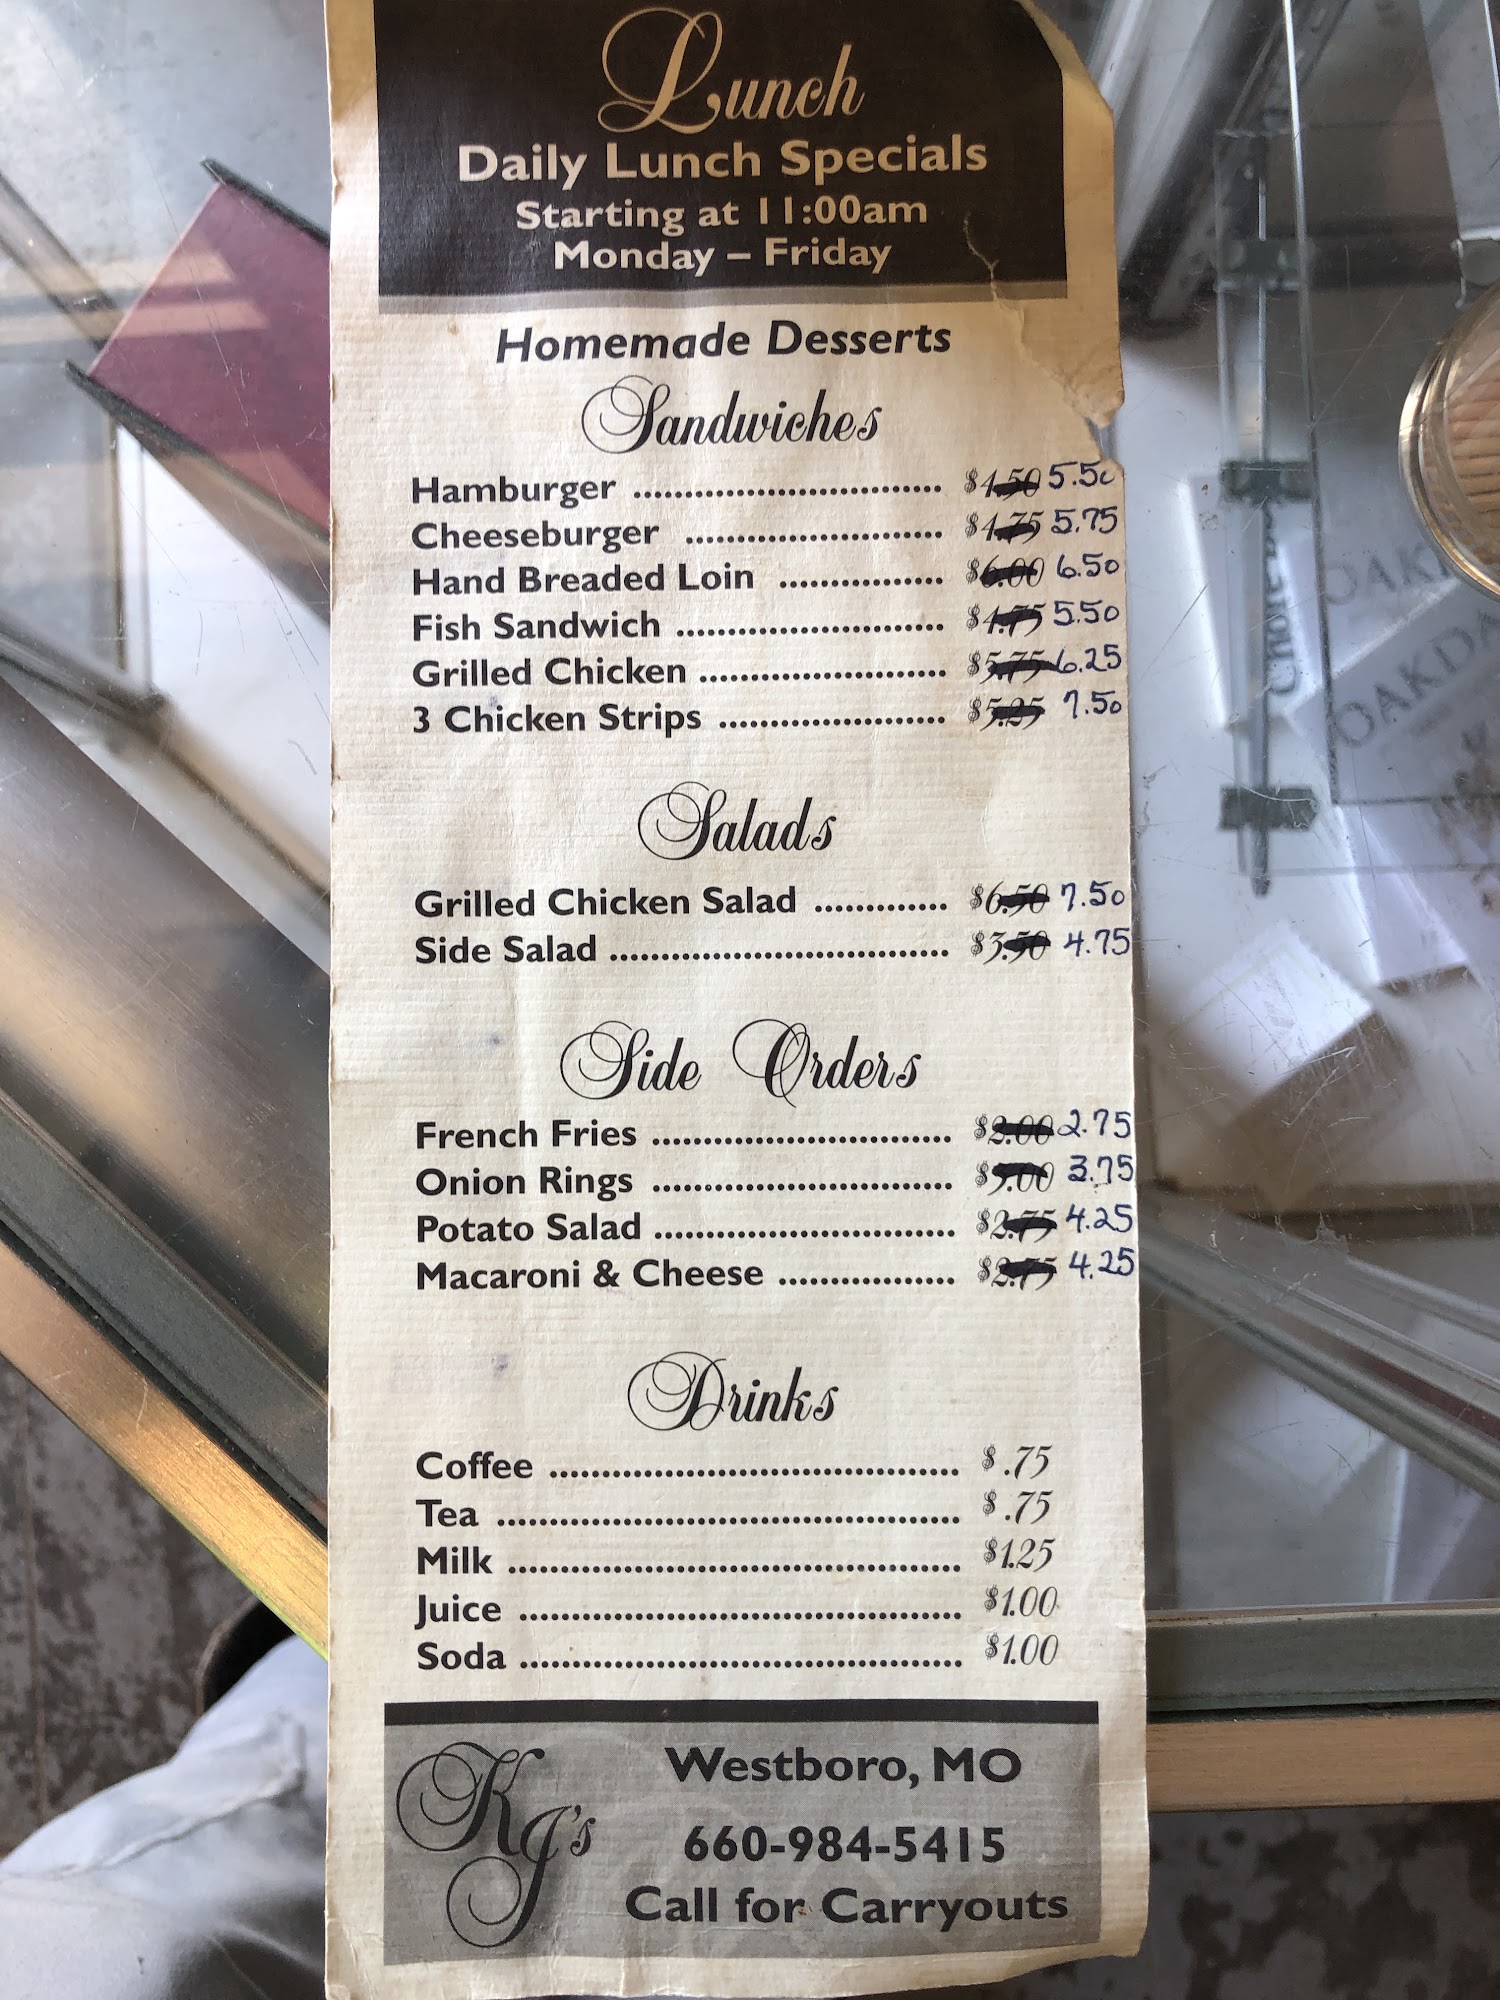 Lunch
Daily Lunch Specials
Starting at 11:00am
Monday – Friday
Homemade Desserts
Sandwiches
Hamburger .............................. $4.50 5.50
Cheeseburger ......................... $4.75 5.75
Hand Breaded Loin ................ $6.00 6.50
Fish Sandwich .......................... $4.75 5.50
Grilled Chicken ........................ $5.75 6.25
3 Chicken Strips ...................... $5.25 7.50
Salads
Grilled Chicken Salad ............. $6.50 7.50
Side Salad ................................. $3.50 4.75
Side Orders
French Fries ............................. $2.00 2.75
Onion Rings ............................. $3.00 3.75
Potato Salad ............................. $2.75 4.25
Macaroni & Cheese ................. $2.75 4.25
Drinks
Coffee ........................................ $ .75
Tea ............................................. $ .75
Milk ............................................ $1.25
Juice ........................................... $1.00
Soda ........................................... $1.00
KJ's
Westboro, MO
660-984-5415
Call for Carryouts
OAKDA